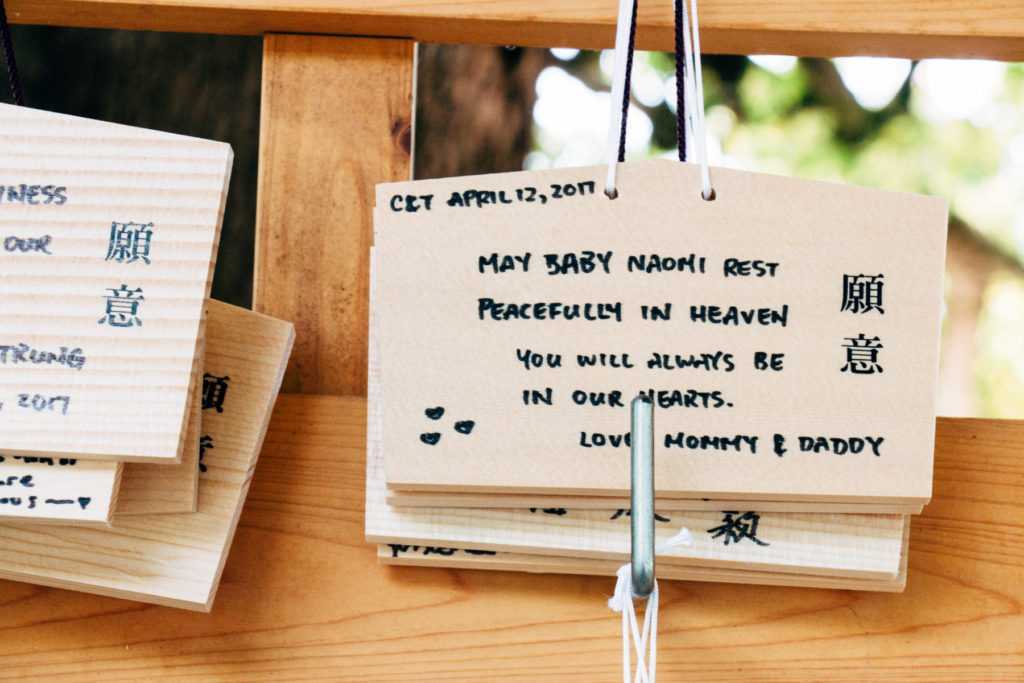 OUR
願意
, 2017
C&T APRIL 12, 2017
MAY BABY NAOMI REST
PEACEFULLY IN HEAVEN
YOU WILL ALWAYS BE
IN OUR HEARTS.
LOVE MOMMY & DADDY
願意
願